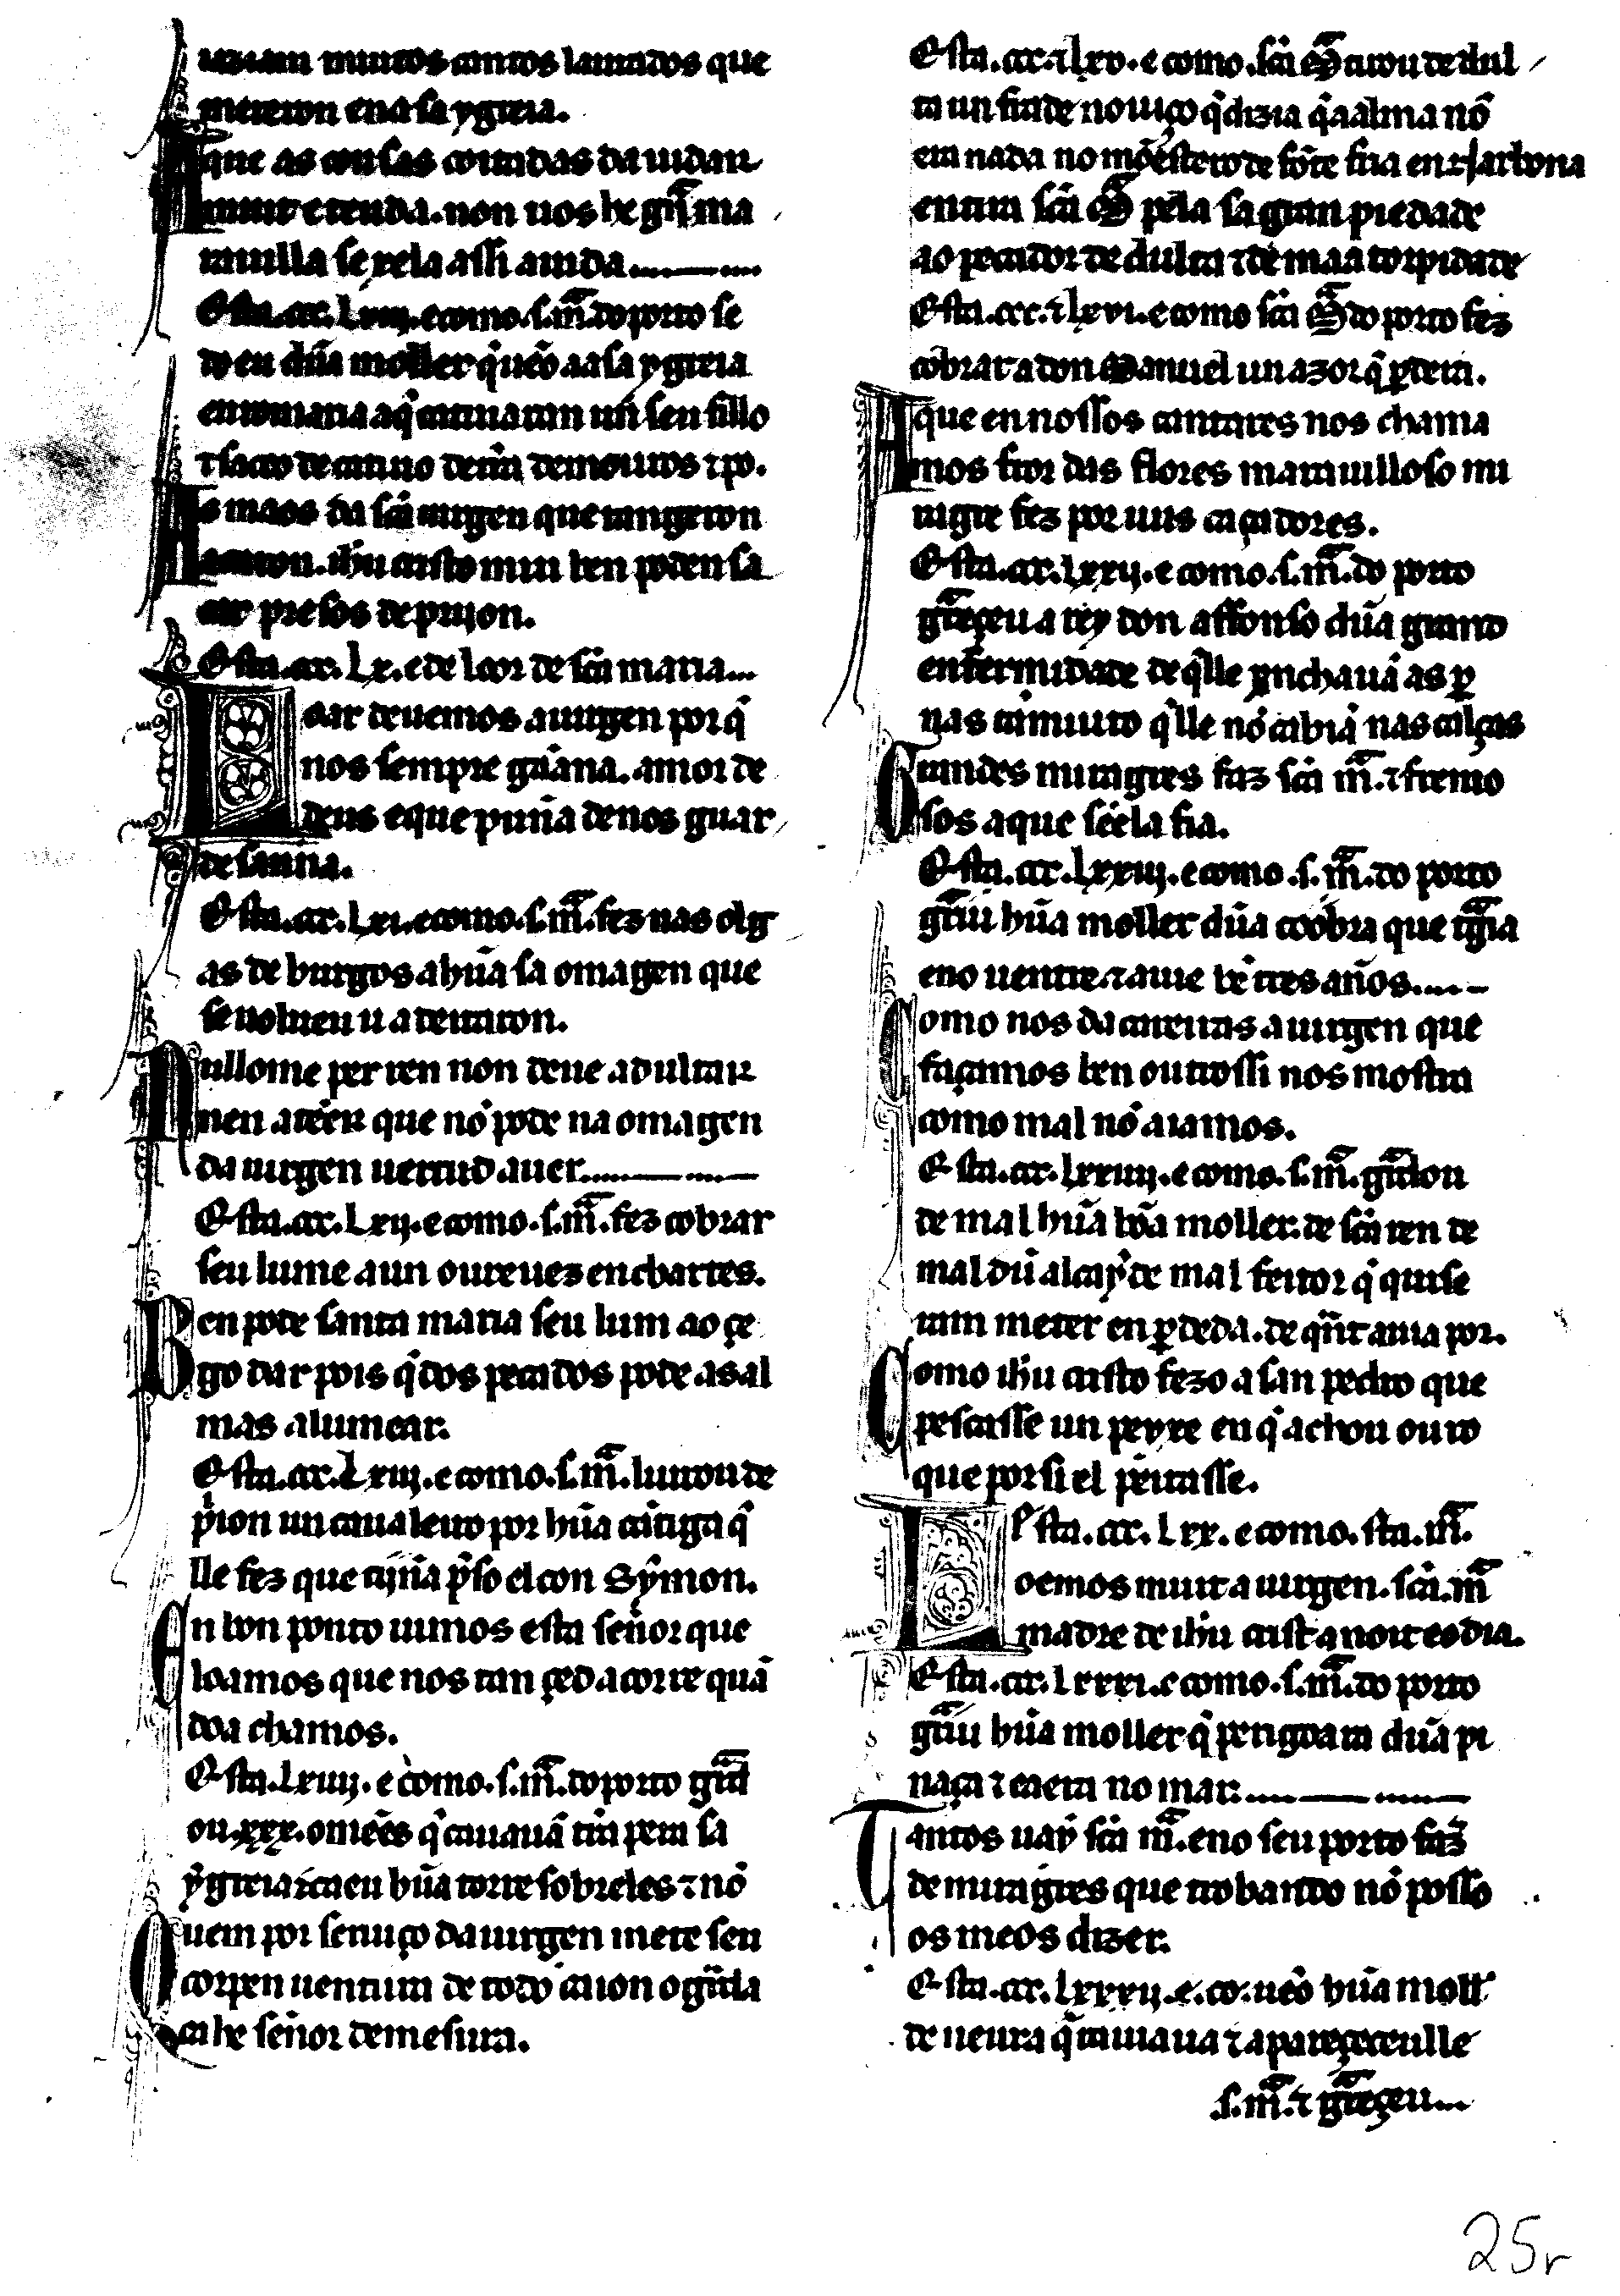 uiam muitos cantos laurados que
meteron ena sa ygreia.
A que as cousas coitadas da iudar
muit e teuda. non uos he gṝ̃a ma
rauilla se xela assi aiuda
Esta. ccc. Lviij. e como. s. m̃. do porto se
doeu dũa moller q̇ uẽo aa sa ygreia
en romaria a q̇ catiuaran un seu fillo
⁊ saco o de catiuo
As maos da scã uirgen que tangeron
acaron. ihũ cristo mui ben poden sa
car presos de prijon.
Esta. ccc. Lx. e de loor de scã maria...
Loar deuemos a uirgen por q̇
nos sempre gãana. amor de
deus e que puña de nos guar
de sanna.
Esta. ccc. Lxi. e como. s. m̃. fez nas olg
as de burgos a hũa sa omagen que
se uolueu u a deitaron.
Null ome per ren non deue a dultar
nen a tẽer que nõ pode na omagen
da uirgen uertud auer
Esta. ccc. Lxij. e como. s. m̃. fez cobrar
seu lume a un oureuez en chartes.
Ben pode santa maria seu lum ao çe
go dar pois q̇ dos pecados pode as al
mas alumear.
Esta. ccc. Lxiij. e como. s. m̃. liurou de
p̓ion un caualeiro por hũa cãtiga q̇
lle fez que tijña p̓so el con Symon.
En bon ponto uimos esta señor que
loamos que nos tan çed acorre quã
doa chamos.
Esta. Lxiiij. e como. s. m̃. do porto gũd
ou. xxx. omẽes q̇ cauauã t̓ra pera sa
ygreia ⁊ caeu hũa torre sobreles ⁊ nõ
Quem por seruiço da uirgen mete seu
corp en uentura de todo cajon o gũda
ca he señor de mesura.
Esta. ccc. ⁊ Lxv. e como. scã M̃ tirou de dul
ta un frade nouiço q̇ dizia q̇ a alma nõ
era nada no mõesteiro de fõte fria en Narbona
en tira scã M̃ pela sa gran piedade
ao pecador de dulta ⁊ de maa torpidade
Esta. ccc. ⁊ Lxvi. e como scã M̃ do porto fez
cobrar a don Manuel un azor q̇ ꝑdera.
A que en nossos cantares nos chama
mos fror das flores marauilloso mi
ragre fez por uus caçadores.
Esta. ccc. Lxxij. e como. s. m̃. do porto
gũeçeu a rey don affonso dũa grand
enfermidade de q̇ lle ynchauã as ꝑ
nas tã muito q̇ lle nõ cabiã nas calças
Grandes miragres faz scã m̃. ⁊ fremo
sos a que sẽela fia.
Esta. ccc. Lxxiij. e como. s. m̃. do porto
gũiu hũa moller dũa coobra que tgia
eno uentre. ⁊ auie bẽ tres años
Como nos da carreiras a uirgen que
façamos ben outrossi nos mostra
como mal nõ aiamos.
Esta. ccc. Lxxiiij. e como. s. m̃. gũdou
de mal hũa bõa moller. de scã ren de
mal dũ alcayde mal feitor q̇ quise
ram meter en ꝑdeda. de q̃nt auia por.
Como ihũ cristo fezo a san pedro que
pescasse un peyxe en q̇ achou ouro
que por si el peitasse.
Esta. ccc. Lxx. e como. sta. m̃.
Loemos muit a uirgen. scã. m̃
madre de ihũ crist a noit e o dia.
Esta. ccc. Lxxxi. e como. s. m̃. do porto
gũiu hũa moller q̇ perigoara dũa pi
naça ⁊ caera no mar
Tantos uay scã m̃. eno seu porto faz̃
de miragres que trobando nõ posso
os meos dizer.
Esta. ccc. Lxxxij. e. co. uẽo hũa moll̃
de neura q̇ rauiaua ⁊ apareçeeulle
s. m̃. ⁊ gũeçeu...
25r